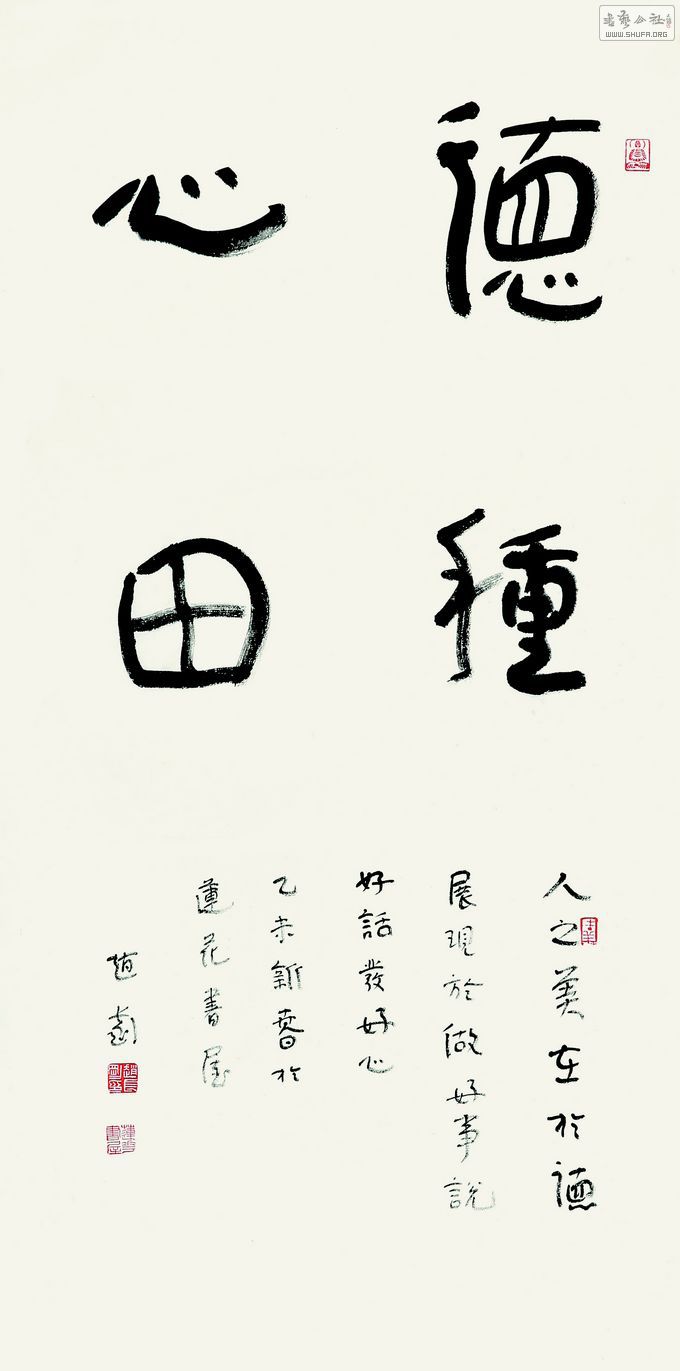 德種
心田
人之美在於德
展現於做好事說
好話發好心
乙未新春於
蓮花書屋
書藝公社
WWW.SHUFA.ORG